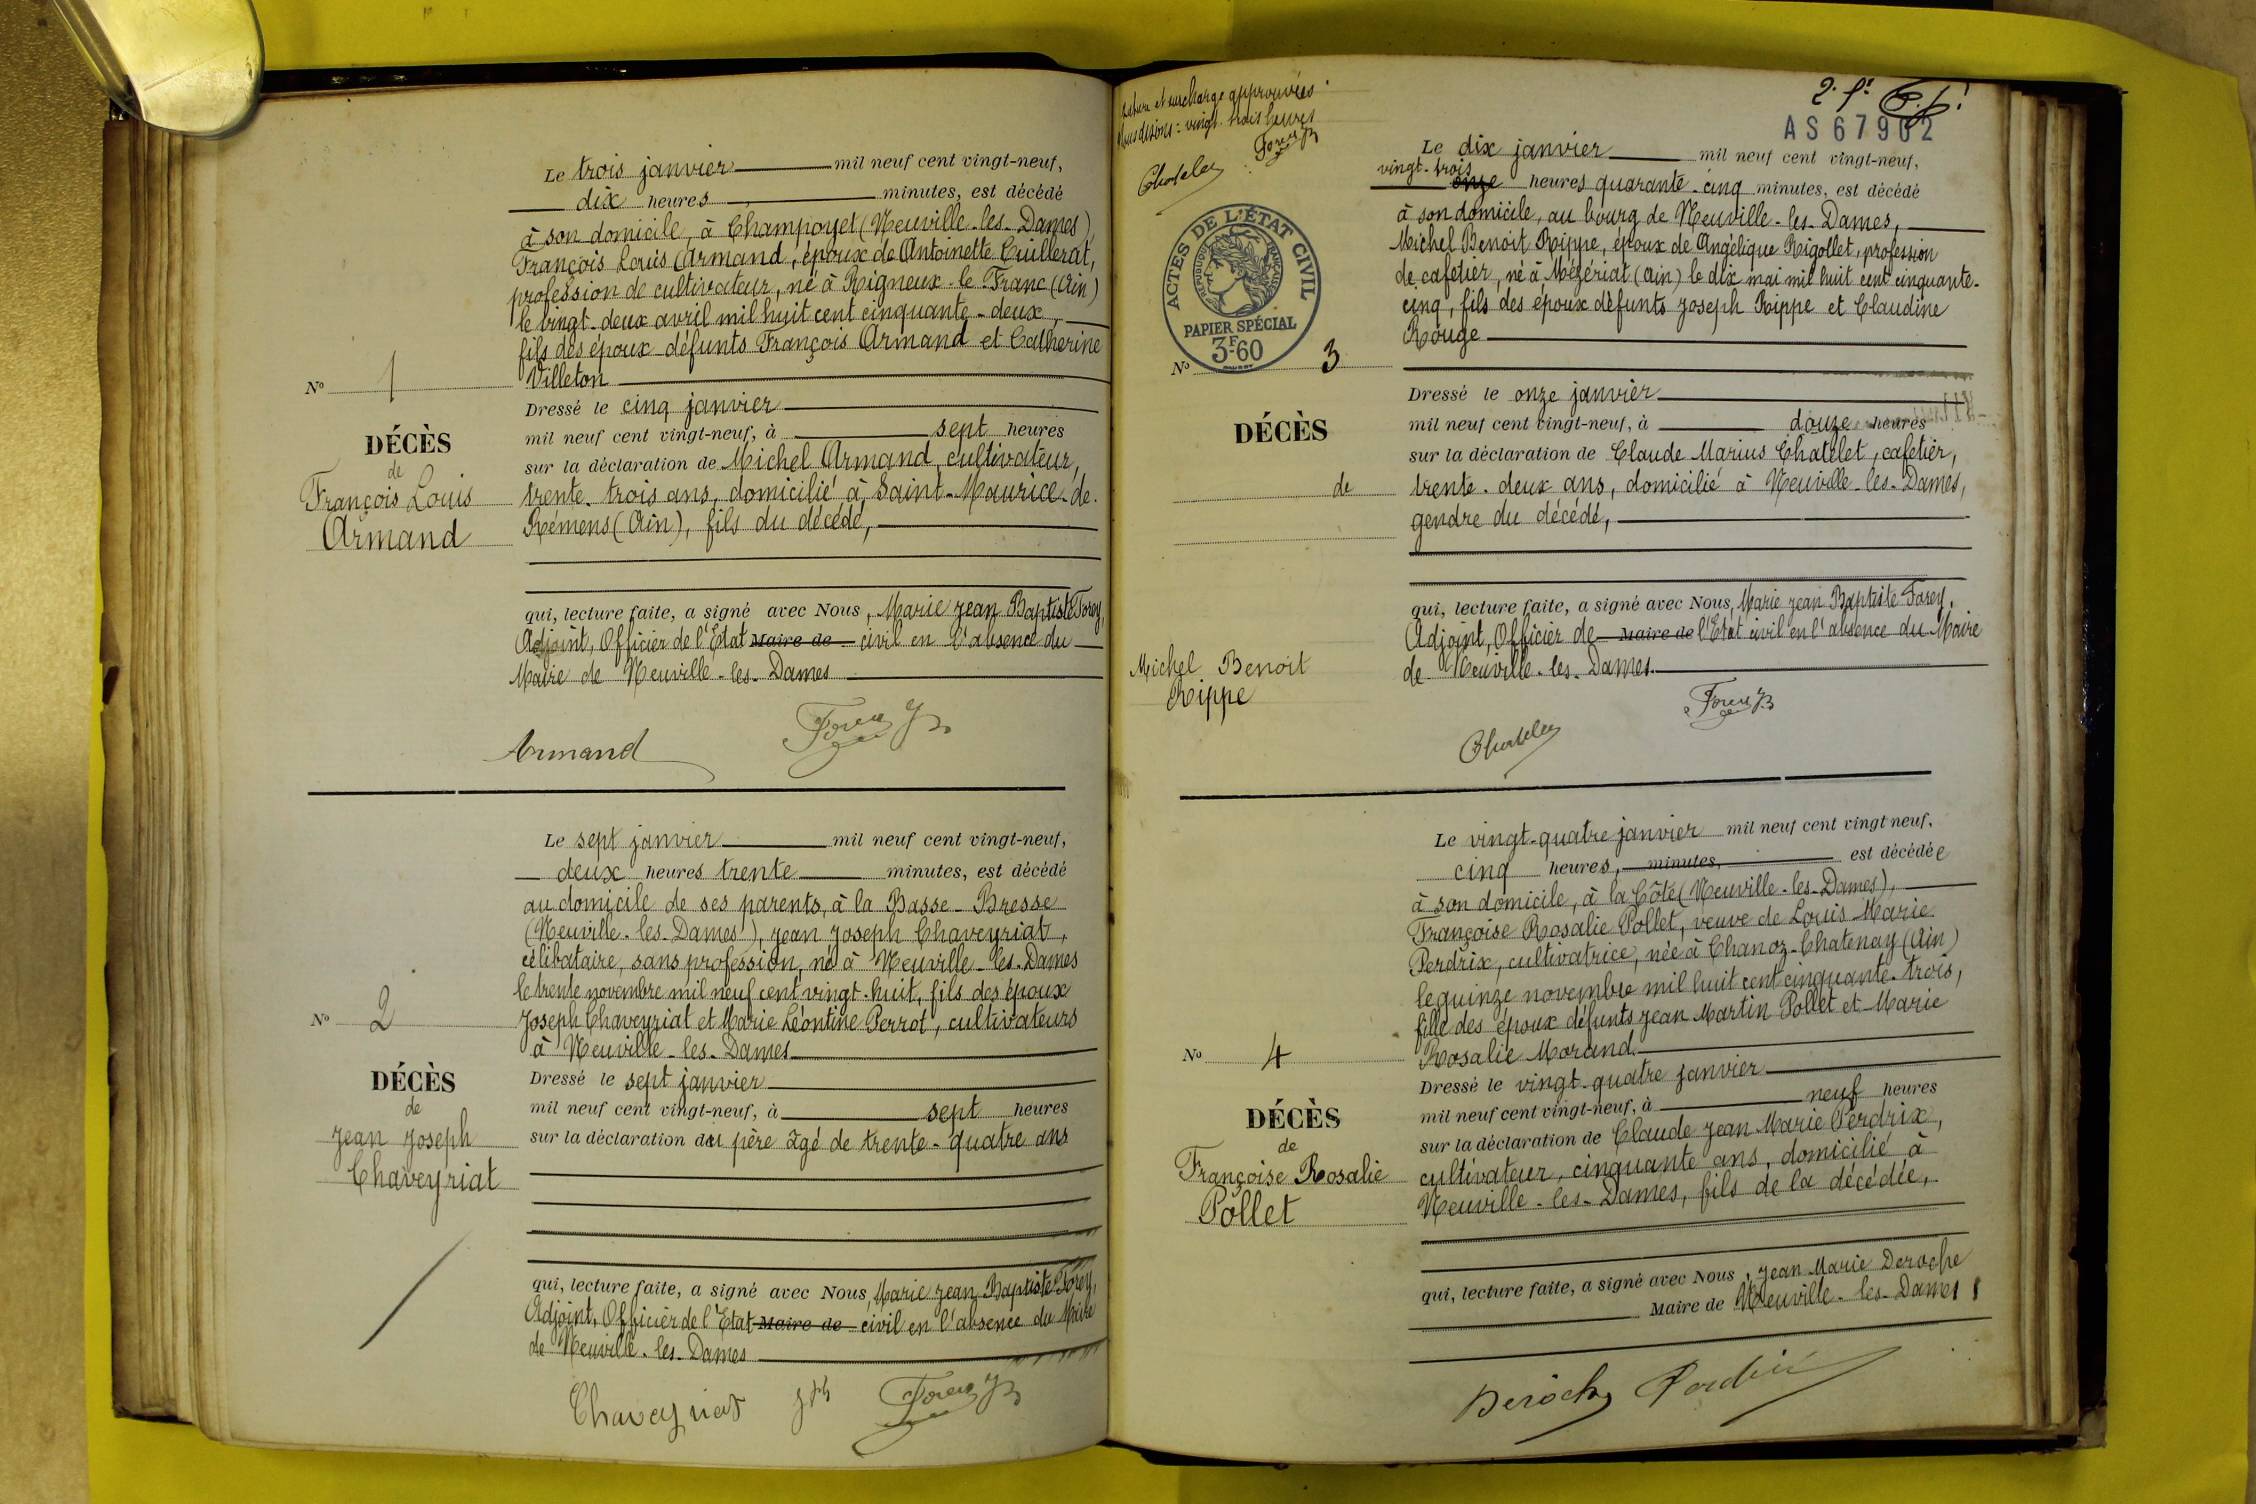 Le trois janvier mil neuf cent vingt-neuf,
dix heures minutes, est décédé
à son domicile, à Champoyet (Neuville-les-Dames),
François Louis Armand, époux de Antoinette Cuillerat,
profession de cultivateur, né à Rigneux-le-Franc (Ain)
le vingt-deux avril mil huit cent cinquante-deux,
fils des époux défunts François Armand et Catherine
Villeton
N° 1
Dressé le cinq janvier
mil neuf cent vingt-neuf, à sept heures
DÉCÈS
de
François Louis
Armand
sur la déclaration de Michel Armand, cultivateur,
trente-trois ans, domicilié à Saint-Maurice-de-
Rémens (Ain), fils du décédé,
qui, lecture faite, a signé avec Nous, Marie Jean Baptiste Forey,
Adjoint, Officier de l'Etat Maire de civil en l'absence du
Maire de Neuville-les-Dames
Armand Forey JB
Le sept janvier mil neuf cent vingt-neuf,
deux heures trente minutes, est décédé
au domicile de ses parents, à la Basse-Bresse
(Neuville-les-Dames), Jean Joseph Chaveyriat,
célibataire, sans profession, né à Neuville-les-Dames
le trente novembre mil neuf cent vingt-huit, fils des époux
Joseph Chaveyriat et Marie Léontine Perrot, cultivateurs
à Neuville-les-Dames
N° 2
DÉCÈS
de
Jean Joseph
Chaveyriat
Dressé le sept janvier
mil neuf cent vingt-neuf, à sept heures
sur la déclaration du père âgé de trente-quatre ans
qui, lecture faite, a signé avec Nous, Marie Jean Baptiste Forey,
Adjoint, Officier de l'Etat Maire de civil en l'absence du Maire
de Neuville-les-Dames
Chaveyriat Jph Forey JB
et surcharge approuvées
Nous disons: vingt-trois heures
Forey JB
Chatelet
2.
AS 67902
ACTES DE L'ÉTAT CIVIL
RÉPUBLIQUE FRANÇAISE
PAPIER SPÉCIAL
3F60
Le dix janvier mil neuf cent vingt-neuf,
vingt-trois
onze heures quarante-cinq minutes, est décédé
à son domicile, au bourg de Neuville-les-Dames,
Michel Benoit Rippe, époux de Angélique Rigollet, profession
de cafetier, né à Mézériat (Ain) le dix mai mil huit cent cinquante-
cinq, fils des époux défunts Joseph Rippe et Claudine
Rouge
N° 3
DÉCÈS
de
Michel Benoit
Rippe
Dressé le onze janvier
mil neuf cent vingt-neuf, à douze heures
sur la déclaration de Claude Marius Chatelet, cafetier,
trente-deux ans, domicilié à Neuville-les-Dames,
gendre du décédé,
qui, lecture faite, a signé avec Nous, Marie Jean Baptiste Forey,
Adjoint, Officier de Maire de l'Etat civil en l'absence du Maire
de Neuville-les-Dames.
Chatelet Forey JB
Le vingt-quatre janvier mil neuf cent vingt neuf,
cinq heures, minutes, est décédée
à son domicile, à la Côte (Neuville-les-Dames),
Françoise Rosalie Pollet, veuve de Louis Marie
Perdrix, cultivatrice, née à Chanoz-Chatenay (Ain)
le quinze novembre mil huit cent cinquante-trois,
fille des époux défunts Jean Martin Pollet et Marie
Rosalie Morand.
N° 4
DÉCÈS
de
Françoise Rosalie
Pollet
Dressé le vingt-quatre janvier
mil neuf cent vingt-neuf, à neuf heures
sur la déclaration de Claude Jean Marie Perdrix,
cultivateur, cinquante ans, domicilié à
Neuville-les-Dames, fils de la décédée,
qui, lecture faite, a signé avec Nous, Jean Marie Deroche
Maire de Neuville-les-Dames
Deroche Perdrix